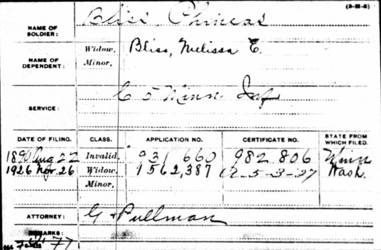 (3-M-6)
NAME OF SOLDIER: Bliss Phineas
NAME OF DEPENDENT: Widow, Bliss, Melissa E.
Minor,
SERVICE: C 5 Minn Inf
DATE OF FILING. CLASS. APPLICATION NO. CERTIFICATE NO. STATE FROM WHICH FILED.
1890 Aug 22 Invalid, 931 660 982 806 Minn
1926 Apr. 26 Widow, 1562,387 12-5-3-27 Wash.
Minor,
ATTORNEY: G Pullman
REMARKS:
77